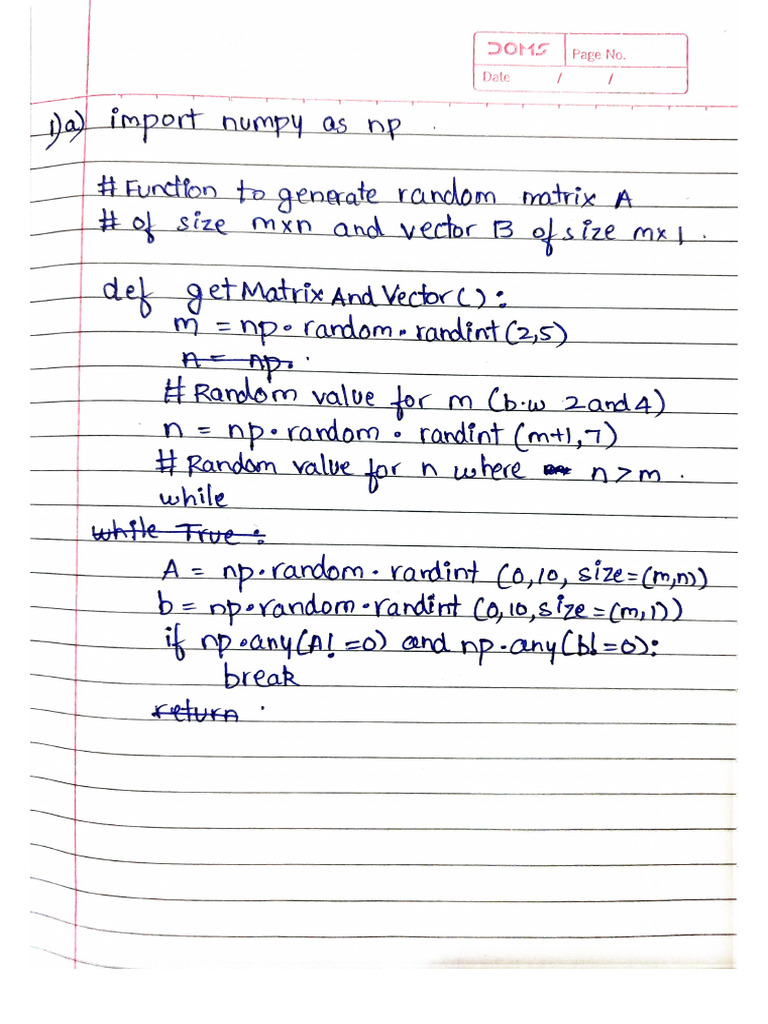 DOMS Page No.
Date / /
1)a) import numpy as np .
# Function to generate random matrix A
# of size mxn and vector B of size mx1 .
def getMatrixAndVector():
m = np.random.randint(2,5)
A = np.
# Random value for m (b.w 2 and 4)
n = np.random.randint(m+1,7)
# Random value for n where n>m .
while
while True:
A = np.random.randint (0,10, size=(m,n))
b = np.random.randint (0,10,size=(m,1))
if np.any(A! =0) and np.any(b!=0):
break
return .